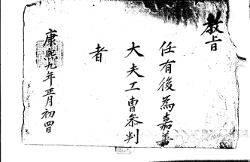 教旨
任有後為嘉善
大夫工曹參判
者
康熙九年正月初四日